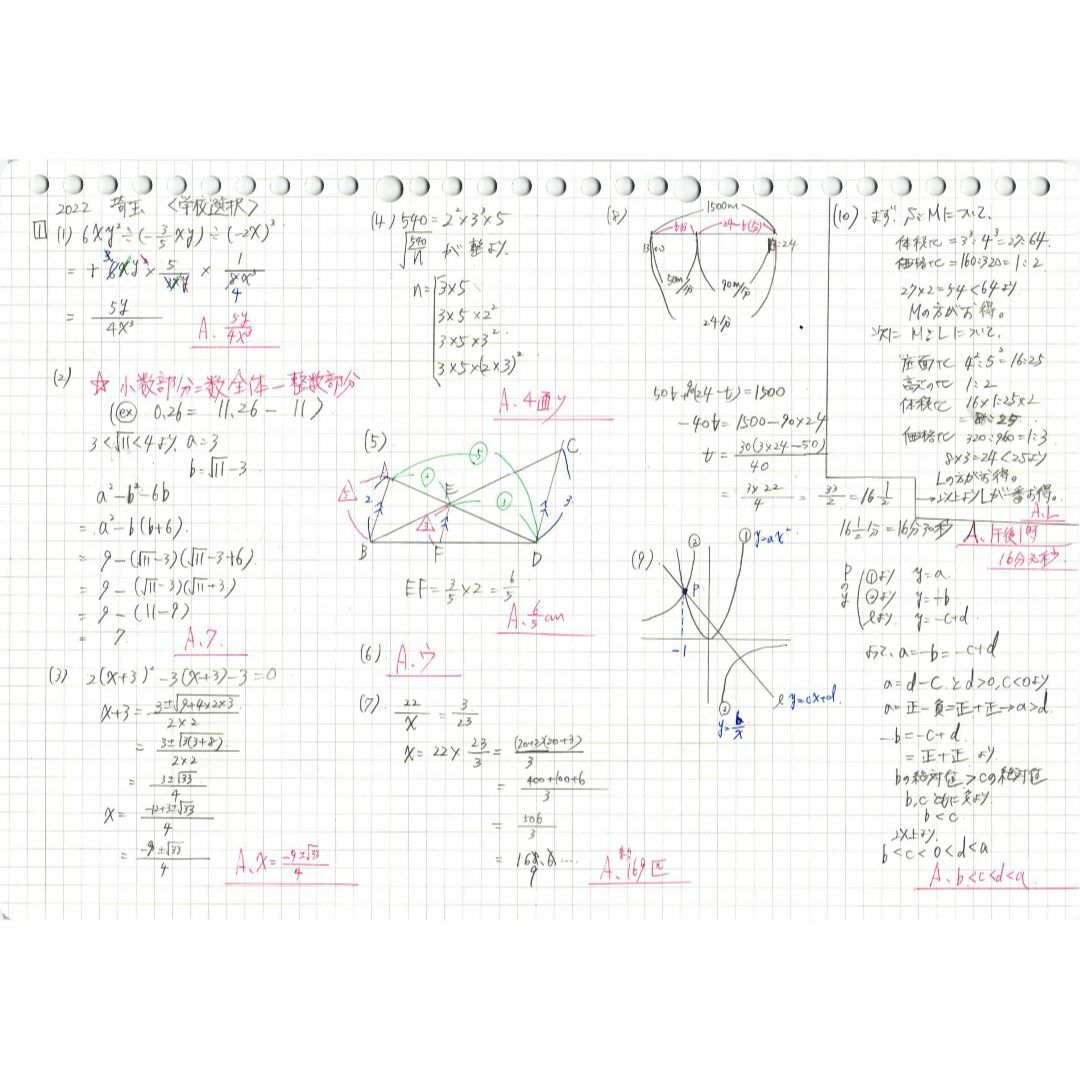 2022 埼玉 <学校選択>
1
(1) 6xy²÷(-3/5xy)÷(-2x)³
= + 6xy² × 5/3xy × 1/8x³
= 5y/4x³
A. 5y/4x³
(2) ☆ 小数部分=数全体-整数部分
(ex) 0.26 = 11.26 - 11)
3<√11<4より a=3
b=√11-3
a²-b²-6b
= a²-b(b+6)
= 9-(√11-3)(√11-3+6)
= 9-(√11-3)(√11+3)
= 9-(11-9)
= 7
A. 7
(3) 2(x+3)²-3(x+3)-3=0
x+3= 3±√9+4×2×3/2×2
= 3±√3(3+8)/2×2
= 3±√33/4
x= -12+3±√33/4
= -9±√33/4
A. x= -9±√33/4
(4) 540=2²×3³×5
√540/n が整より
n= 3×5
3×5×2²
3×5×3²
3×5×(2×3)²
A. 4通り
(5)
A
B
C
D
E
F
2
3
②
③
⑤
EF= 3/5×2= 6/5
A. 6/5 cm
(6) A. ウ
(7) 22/x = 3/23
x= 22× 23/3 = (20+2)(20+3)/3
= 400+100+6/3
= 506/3
= 168.6…
9
A. 約169匹
(8)
1500m
24-t(分)
13:00
:24
50m/分
90m/分
24分
50t+90(24-t)=1500
-40t=1500-90×24
t= 30(3×24-50)/40
= 3×22/4 = 33/2 =16 1/2
16 1/2分=16分30秒
A. 午後1時
16分30秒
(9)
① y=ax²
②
P
-1
ℓ y=cx+d
② y= b/x
Pのy
①より y=a
②より y=-b
ℓより y=-c+d
よって、a=-b=-c+d
a=d-c とd>0, c<0より
a=正-負=正+正→a>d
-b=-c+d
=正+正 より
bの絶対値>cの絶対値
b,cともに負より
b<c
以上より
b<c<0<d<a
A. b<c<d<a
(10) まず SとMについて、
体積比=3³:4³=27:64
価格比=160:320=1:2
27×2=54<64より
Mの方がお得。
次に MとLについて、
底面比 4²:5²=16:25
高さの比 1:2
体積比 16×1:25×2
= 8:25
価格比 320:960=1:3
8×3=24<25より
Lの方がお得。
→以上よりLが一番お得。
A. L